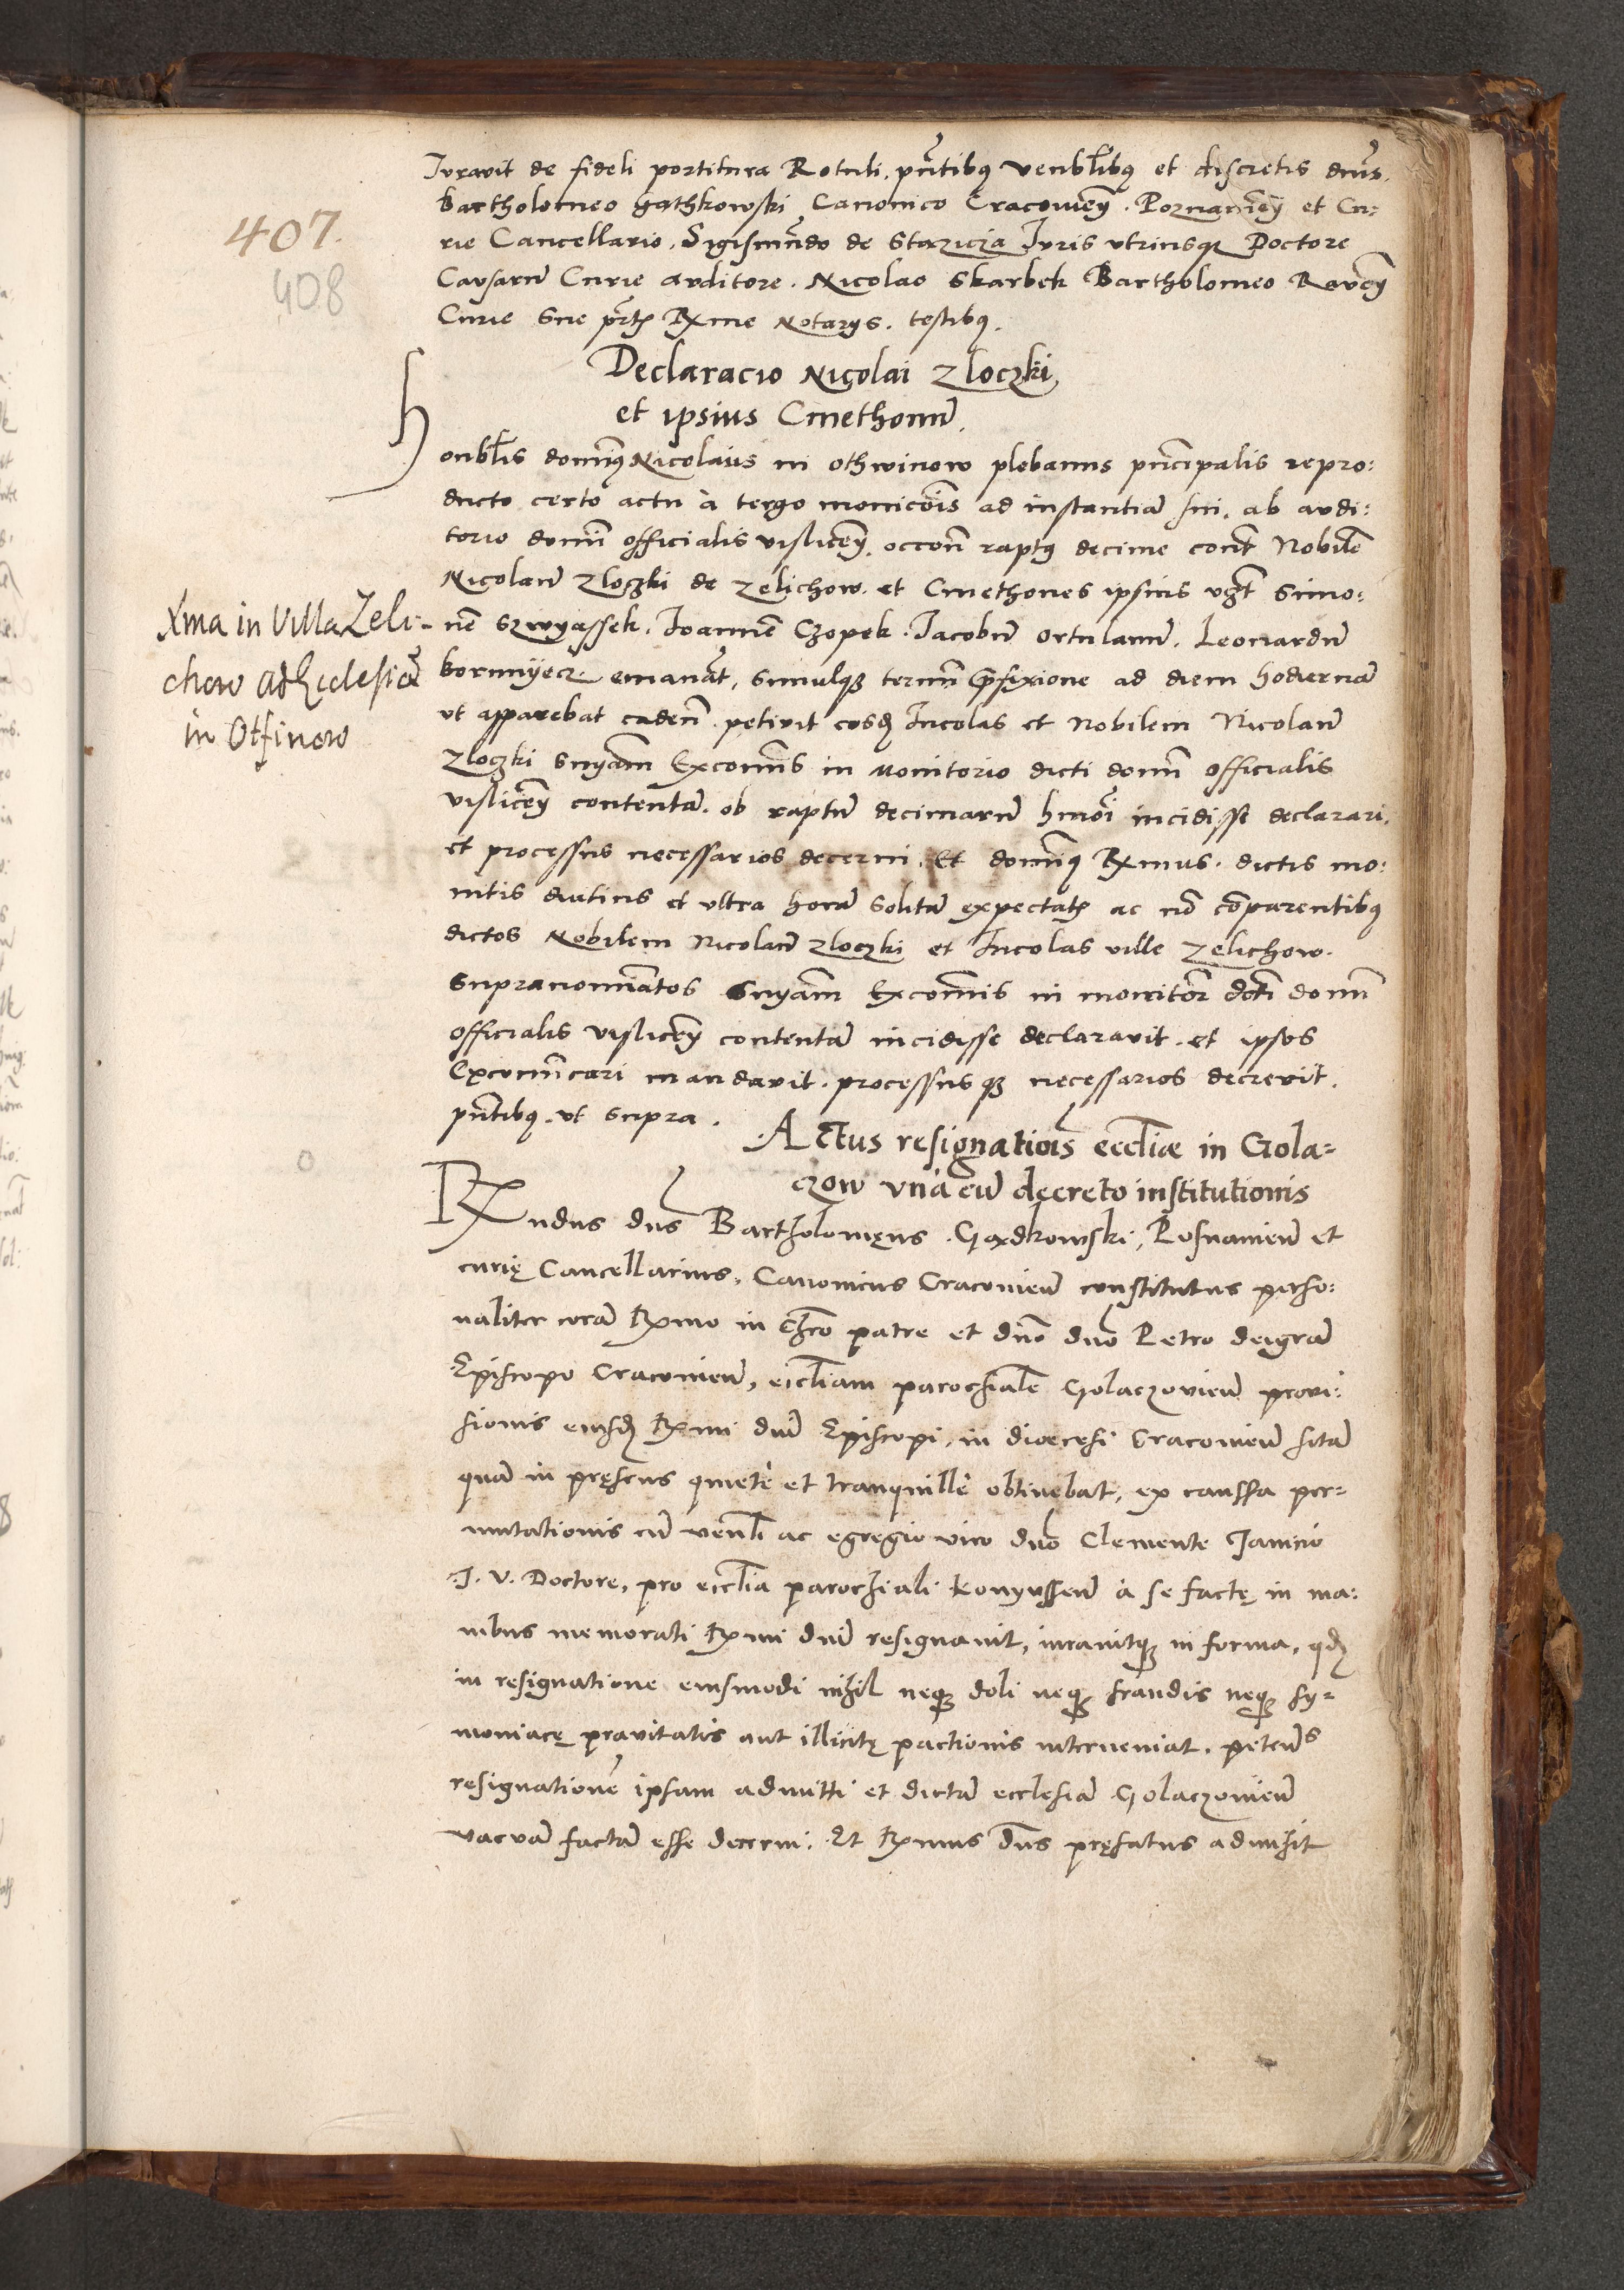 407.
408
Iuravit de fideli portitura Rotuli. pntibus venblibus et discretis dnis.
Bartholomeo gathkowski Canonico Cracovien. Poznanien et Cu:
rie Cancellario, Sigismundo de Starzicza Iuris vtriusque Doctore
Causarum Curie auditore. Nicolao Skarbek Bartholomeo
Curie Sue Rxme Notarys. testibus.
Declaracio Nicolai Zloczki
et ipsius Cmethonum.
Honblis dominus Nicolaus in Othwinow plebanus principalis repro:
ducto certo actu à tergo monicois ad instantiam sui, ab audi:
torio domini officialis vislicen. occone raptus decime cont Nobilem
Nicolaum Zloczki de Zelichow. et Cmethones ipsius vzt Simo:
nem Szwyassek. Joannem Czopek. Jacobum ortulanum. Leonardum
emanat, simulque termini prefixione ad diem hodiernam
vt apparebat eadem. petivit eosdem Incolas et Nobilem Nicolaum
Zloczki snyam Excomis in monitorio dicti domini officialis
vislicen contentam. ob raptum decimarum hmoi incidisse declarari.
et processus necessarios decerni. Et dominus Rxmus. dictis mo:
nitis diutius et vltra horam solitam expectatis ac non comparentibus
dictos Nobilem Nicolaum Zloczki et Incolas ville Zelichow.
supranominatos snyam Excomis in monitor dcti domini
officialis vislicen contentam incidisse declaravit. et ipsos
Excomicari mandavit. processusque necessarios decrevit.
pntibus. vt supra.
Xma in Villa Zeli-
chow ad Ecclesiam
in Otfinow
Actus resignationis eccliae in Gola=
czow vnà cum decreto institutionis
Rxndus dns Bartholomęus Gadkowski, Posnanien et
curię Cancellarius, Canonicus Cracovien constitutus perso:
naliter coram Rxmo in Chro patre et dno dno Petro dei gram
Episcopo Cracovien, eccliam parochialem Golaczovien provi:
sionis eiusdem Rxmi dni Episcopi, in dioecesi Cracovien sitam
quam in pręsens quietè et tranquillè obtinebat, ex caussa per=
mutationis cum venli ac egregio viro dno Clemente Janicio
I. V. Doctore, pro ecclia parochiali à se factę in ma:
nibus memorati Rxmi dni resignavit, iuravitque in forma, qd
in resignatione eiusmodi nihil neque doli neque fraudis neque sy=
moniacę pravitatis aut illicitę pactionis interveniat. petens
resignationem ipsam admitti et dictam ecclesiam Golaczovien
vacuam factam esse decerni. Et Rxmus Dns pręfatus admisit